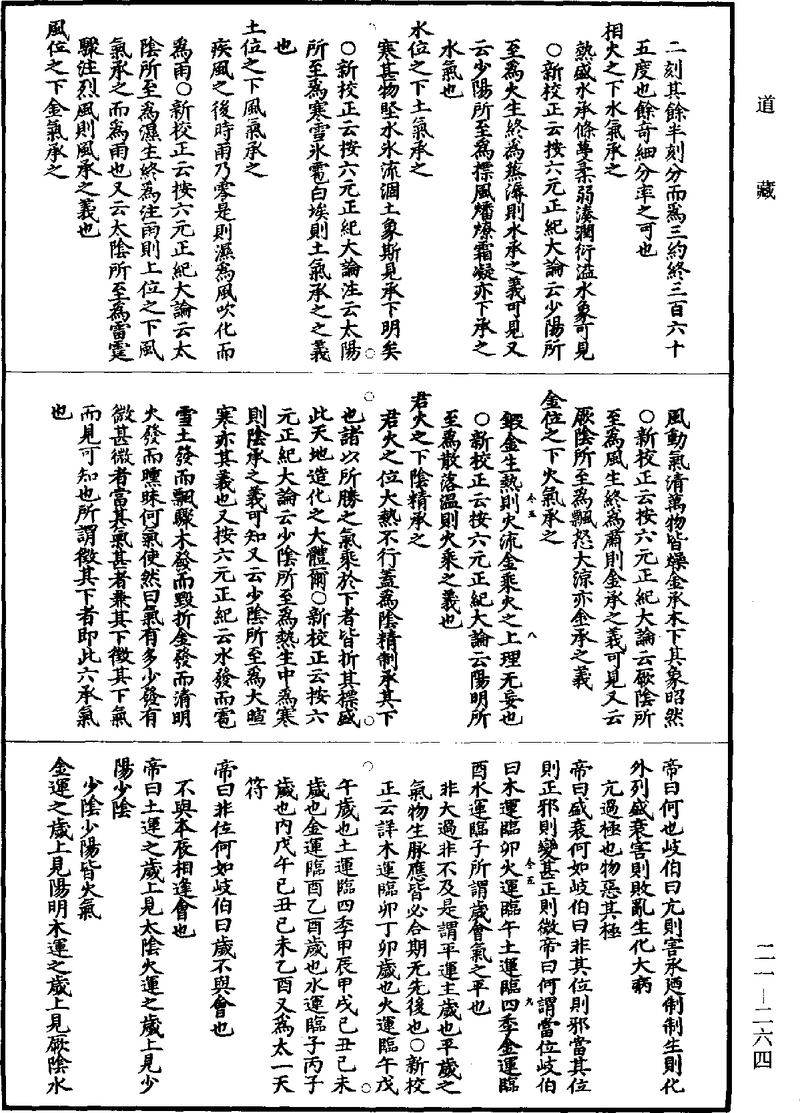 道藏
二刻其餘半刻分而爲三約終三百六十
五度也餘奇細分率之可也
相火之下水氣承之
熱盛水承條蔓柔弱湊潤衍溢水象可見
○新校正云按六元正紀大論云少陽所
至爲火生終爲蒸溽則水承之義可見又
云少陽所至爲摽風燔燎霜凝亦下承之
水氣也
水位之下土氣承之
寒甚物堅水氷流涸土象斯見承下明矣
○新校正云按六元正紀大論注云太陽
所至爲寒雪氷雹白埃則土氣承之之義
也
土位之下風氣承之
疾風之後時雨乃零是則濕爲風吹化而
爲雨○新校正云按六元正紀大論云太
陰所至爲濕生終爲注雨則上位之下風
氣承之而爲雨也又云太陰所至爲雷霆
驟注烈風則風承之義也
風位之下金氣承之
風動氣清萬物皆燥金承木下其象昭然
○新校正云按六元正紀大論云厥陰所
至爲風生終爲肅則金承之義可見又云
厥陰所至爲飄怒大涼亦金承之義
金位之下火氣承之
鍛金生熱則火流金乘火之上理无妄也
○新校正云按六元正紀大論云陽明所
至爲散落温則火乘之義也
君火之下陰精承之
君火之位大熱不行蓋爲陰精制承其下
也諸以所勝之氣乘於下者皆折其摽盛
此天地造化之大體爾○新校正云按六
元正紀大論云少陰所至爲熱生中爲寒
則陰承之義可知又云少陰所至爲大暄
寒亦其義也又按六元正紀云水發而雹
雪土發而飄驟木發而毀折金發而清明
火發而曛昧何氣使然曰氣有多少發有
微甚微者當其氣甚者兼其下徵其下氣
而見可知也所謂徵其下者即此六承氣
也
帝曰何也岐伯曰亢則害承廼制制生則化
外列盛衰害則敗亂生化大病
亢過極也物惡其極
帝曰盛衰何如岐伯曰非其位則邪當其位
則正邪則變甚正則微帝曰何謂當位岐伯
曰木運臨卯火運臨午土運臨四季金運臨
酉水運臨子所謂歲會氣之平也
非大過非不及是謂平運主歲也平歲之
氣物生脉應皆必合期无先後也○新校
正云詳木運臨卯丁卯歲也火運臨午戊
午歲也土運臨四季甲辰甲戌己丑己未
歲也金運臨酉乙酉歲也水運臨子丙子
歲也内戊午己丑己未乙酉又爲太一天
符
帝曰非位何如岐伯曰歲不與會也
不與本辰相逢會也
帝曰土運之歲上見太陰火運之歲上見少
陽少陰
少陰少陽皆火氣
金運之歲上見陽明木運之歲上見厥陰水
二一—二六四